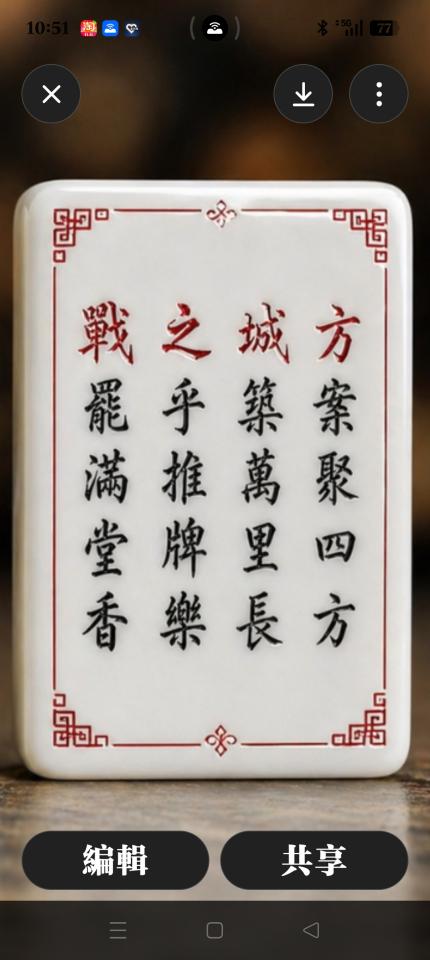 10:51
5G
77
方案聚四方
城築萬里長
之乎推牌樂
戰罷滿堂香
編輯
共享